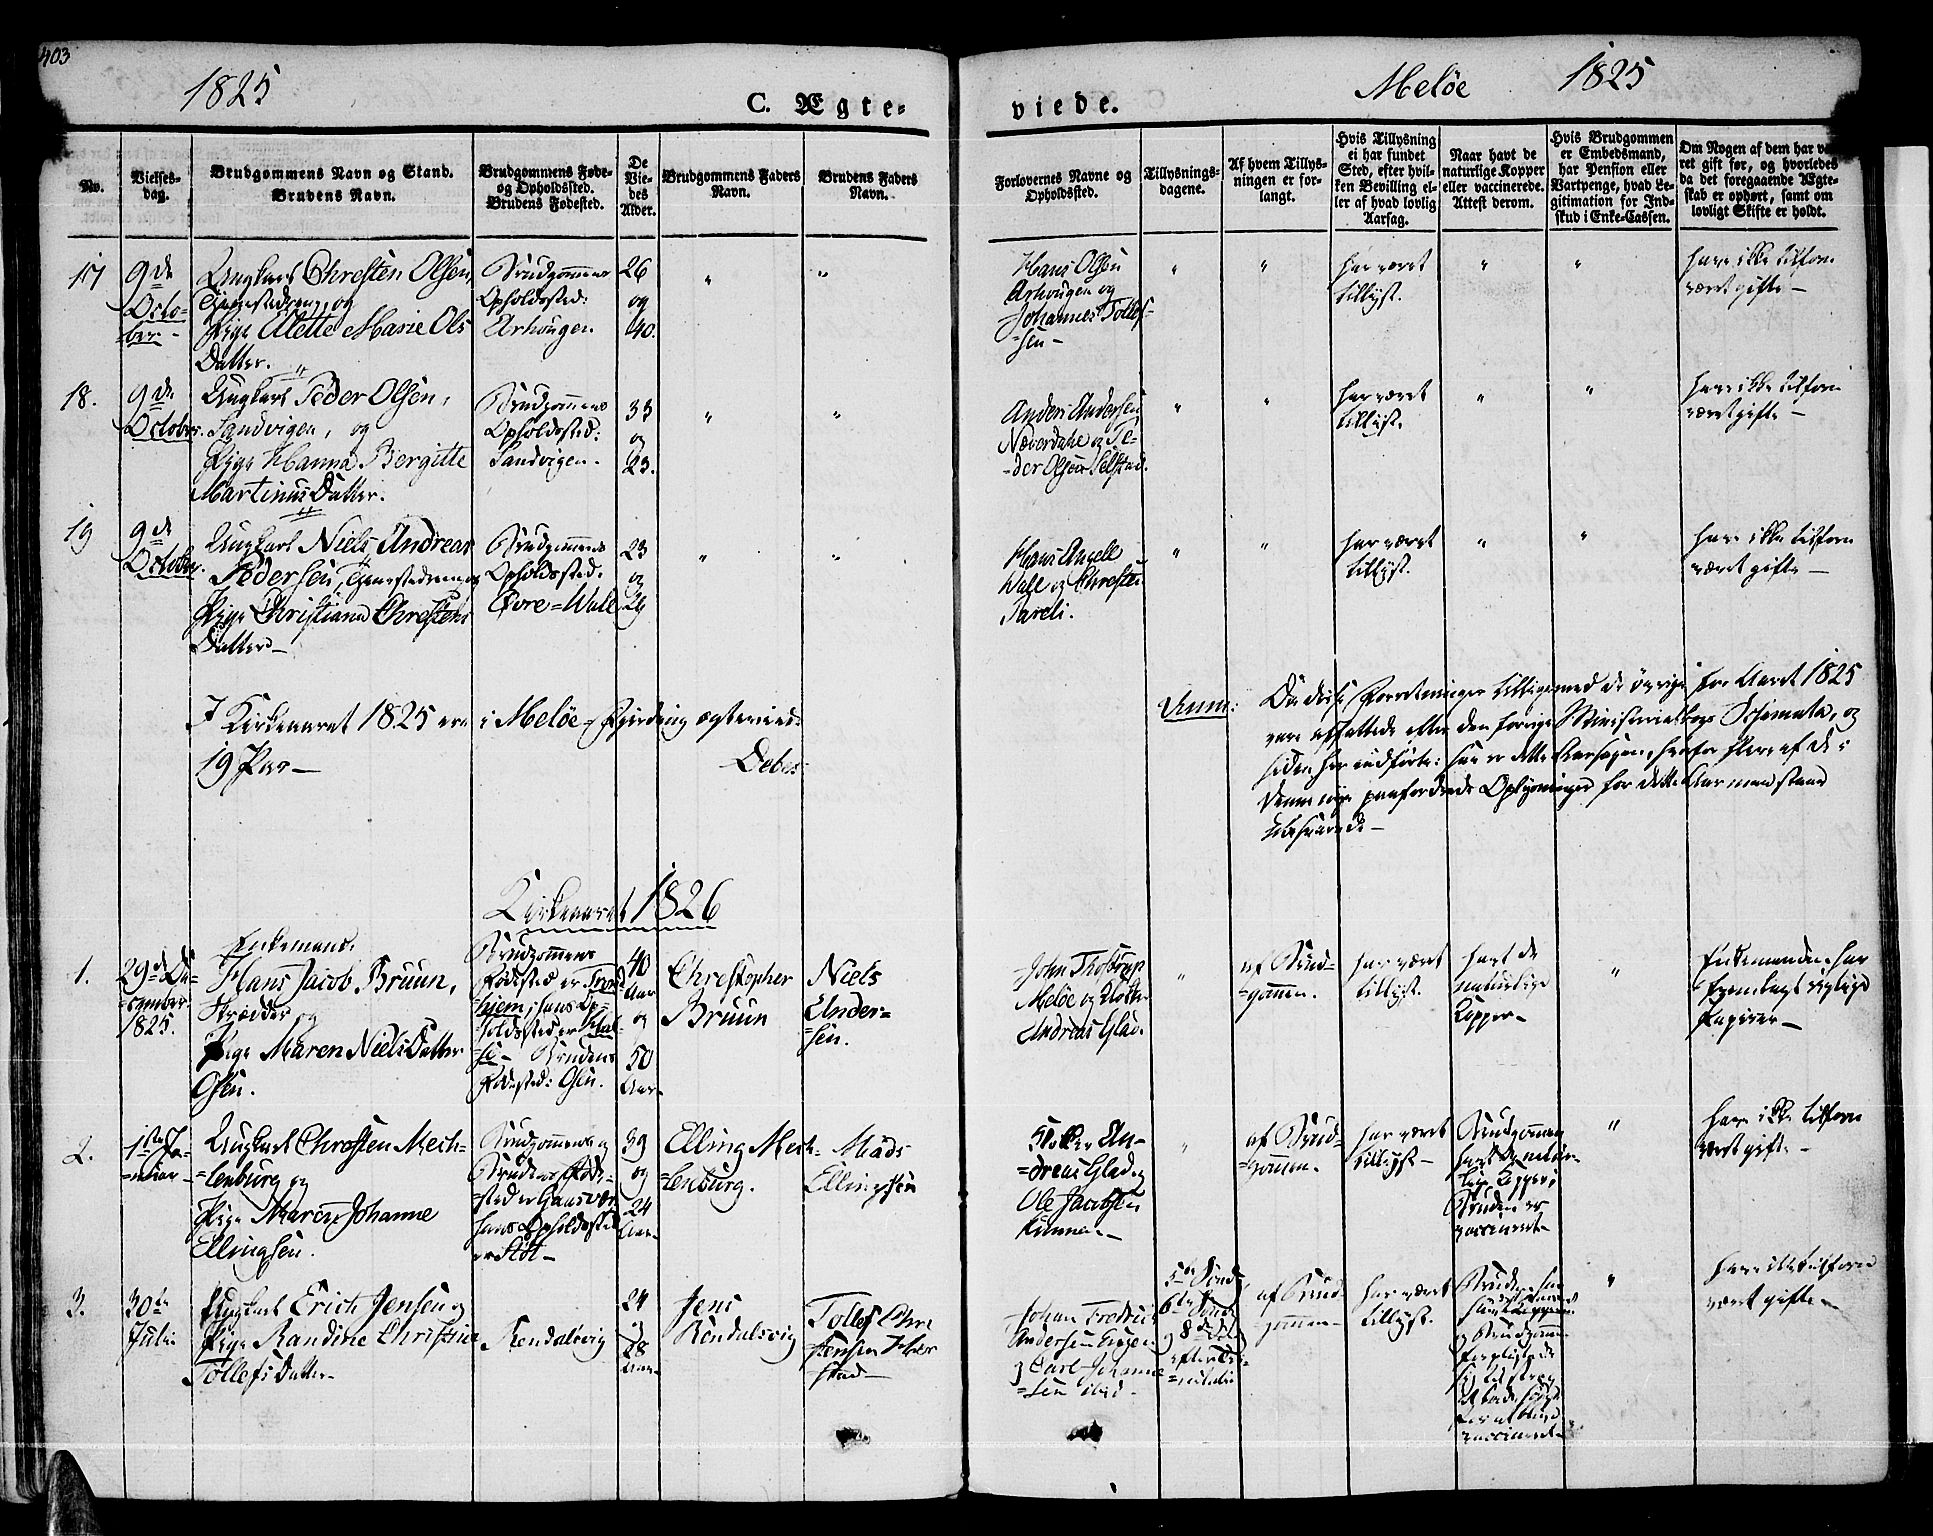 403
1825
C. Ægte-
viede.
Meløe 1825
No.
Vielses-
dag.
Brudgommens Navn og Stand.
Brudens Navn.
Brudgommens Føde-
og Opholdssted.
Brudens Fødested.
De
Vie-
des
Alder.
Brudgommens Faders
Navn.
Brudens Faders
Navn.
Forlovernes Navne og
Opholdssted.
Tillysnings-
dagene.
Af hvem Tillys-
ningen er for-
langt.
Hvis Tillysning
ei har fundet
Sted, efter hvil-
ken Bevilling el-
ler af hvad lovlig
Aarsag.
Naar havt de
naturlige Kopper
eller vaccinerede.
Attest derom.
Hvis Brudgommen
er Embedsmand,
har Pension eller
Vartpenge, hvad Le-
gitimation for Ind-
skud i Enke-Cassen.
Om Nogen af dem har væ-
ret gift før, og hvorledes
da det foregaaende Ægte-
skab er ophørt, samt om
lovligt Skifte er holdt.
17
9de
Octo-
=ber -
Ungkarl Chresten Olsen,
Tjenestedreng, og
Pige Alette Marie Ols
Datter.
Brudgommens
Opholdssted:
Arhougen
26
og
40.
"
"
Hans Olsen
Arhougen og
Johannes Tollef-
=sen -
"
"
har været
tillyst.
"
"
have ikke tilforn
været gifte -
18.
9de
October.
Ungkarl Peder Olsen,
Sandvigen, og
Pige Hanna Bergitte
Martinus Datter.
Brudgommens
Opholdssted:
Sandvigen.
33
og
23.
"
"
Anders Andersen
Næverdahl og Pe-
=der Olsen Selstad.
"
"
har været
tillyst.
"
"
have ikke tilforn
været gifte -
19
9de
October.
Ungkarl Niels Andreas
Pedersen, Tjenestedreng og
Pige Christiana Chrestens
Datter -
Brudgommens
Opholdssted.
Øvre=Wall
23
og
26
"
"
Hans Angell
Wall og Chresten
"
"
har været
tillyst.
"
"
have ikke tilforn
været gifte -
I Kirkeaaret 1825 ere i Meløe-Fjerding ægteviede
19 Par -
Debes
Anm:
Da disse Forretninger tilligemed de øvrige for Aaret 1825
vare affattede efter den forrige Ministerialbogs Schemata, og
siden her indførte: saa er dette Aarsagen, hvorfor flere af de i
denne nye paafordrede Oplysninger for dette Aar maae staae
ubesvarede -
Kirkeaaret 1826
1.
29de De-
=cember
1825.
Enkemand.
Hans Jacob Bruun,
Skrædder og
Pige Maren Niels Datter
Osen.
Brudgommens
Fødested er Trond-
hjem; hans Op-
holdssted er
Brudens
Fødested: Osen.
40
Aar
og
50
Aar
Chrestopher
Bruun
Niels
Ander=
sen.
John Thostrup
Meløe og Klokker
Andreas Glad.
"
af Brud-
=gommen.
har været
tillyst.
havt de
naturlige
Kopper -
"
Enkemanden har
fremlagt rigtige
Papirer -
2.
1ste Ja-
=nuar -
Ungkarl Chresten Mech-
=lenburg og
Pige Maren Johanne
Ellingsen.
Brudgommens og
Brudens Føde-
=sted er Gaasvær
hans Opholdssted
er Støt -
39
og
24
Aar
Elling Mech-
=lenburg.
Mads
Ellingsen
Klokker An-
=dreas Glad og
Ole Jacobsen
"
af Brud-
=gommen.
har været
tillyst -
Brudgommen
havt de natur-
lige Kopper;
Bruden er
vaccineret -
"
have ikke tilforn
været gifte -
3.
30te
Julii
Ungkarl Erich Jensen og
Pige Randine Christine
Tollefs Datter -
Rendalsvig
24
og
28
Aar
Jens
Rendalsvig
Tollef Chre
stensen
Johan Fredrick
Andersen
og Carl Johanne
=sen ibid.
5te Sønd
6te Sønd
og 8de do
efter Tri-
=nitatis
af Brud-
gommen -
har været
tillyst.
vaccineret -
"
have ikke tilforn
været gifte -